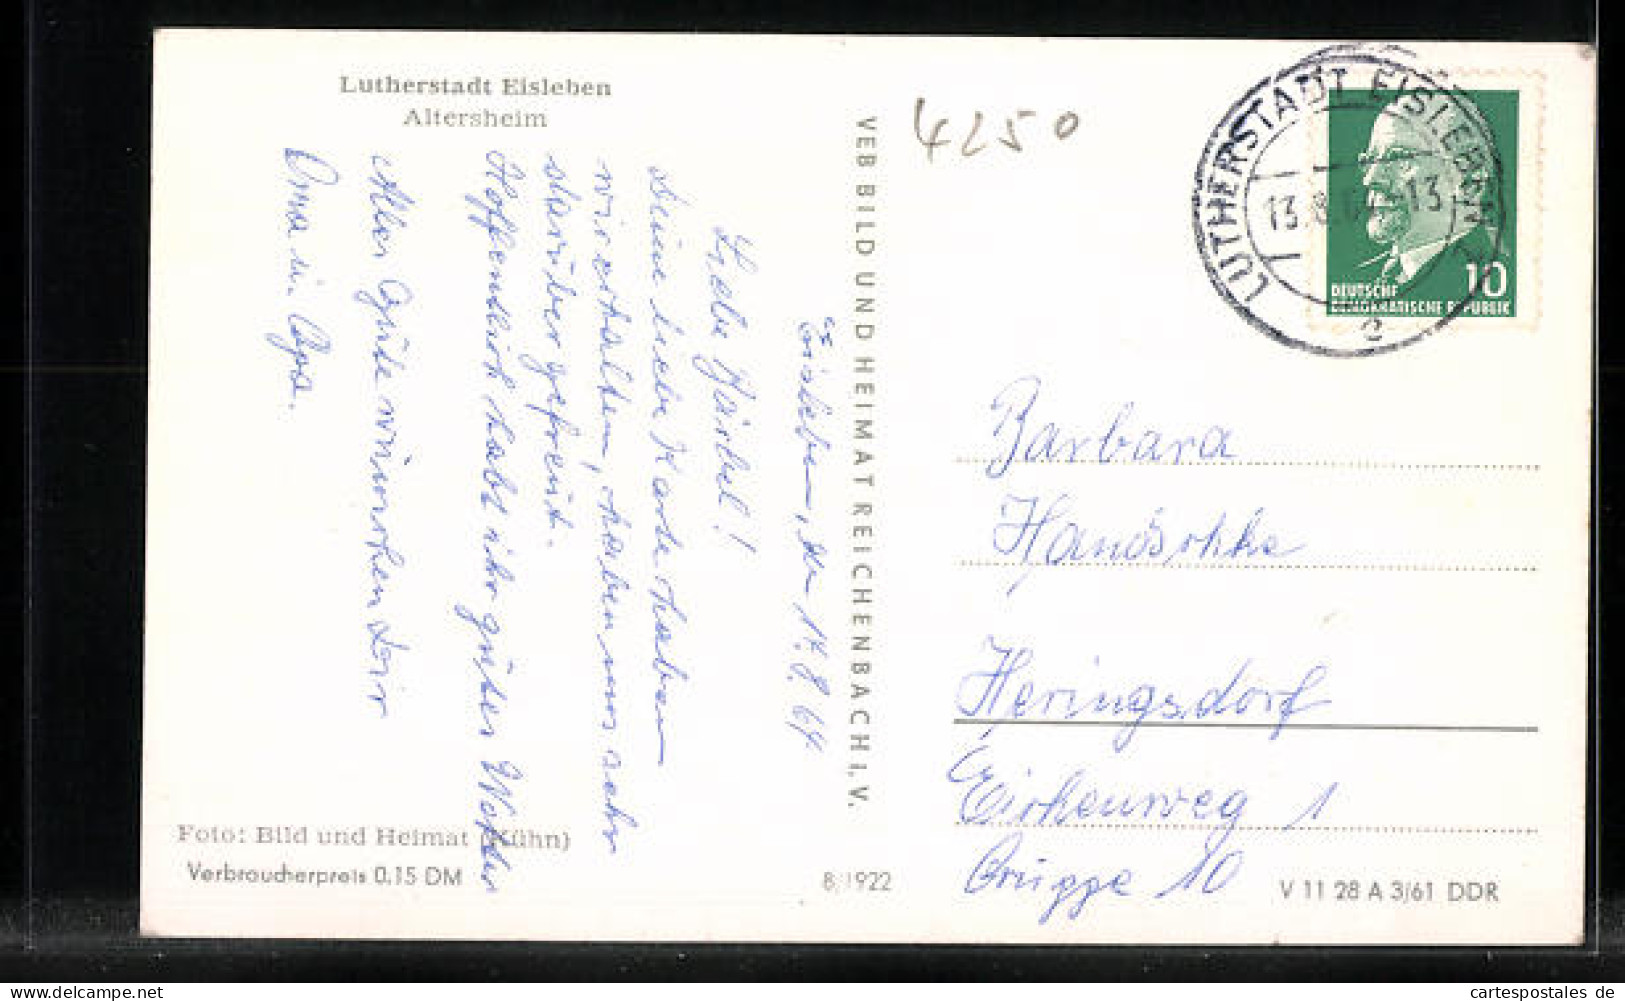 Lutherstadt Eisleben
Altersheim
4250
LUTHERSTADT EISLEBEN
13.8.
-13
c
10
DEUTSCHE
DEMOKRATISCHE REPUBLIK
Eisleben, den 14.8.64.
Liebe Bärbel!
Deine liebe Karte haben
wir erhalten, haben uns sehr
darüber gefreut.
Hoffendlich habt ihr gutes Wetter
Alles Gute wünschen Dir
Oma un Opa.
VEB BILD UND HEIMAT REICHENBACH I. V.
Barbara
Heringsdorf
1
Gruppe 10
Foto: Bild und Heimat (Kühn)
Verbraucherpreis 0,15 DM
8/1922
V 11 28 A 3/61 DDR
cartespostales de